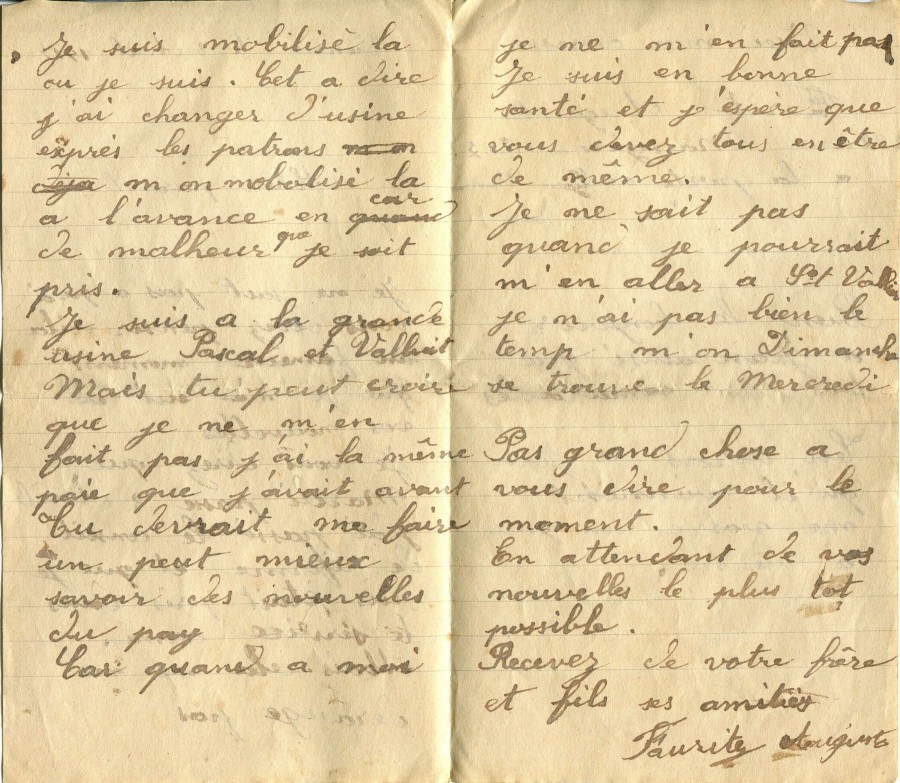 Je suis mobilisé la
ou je suis. Cet a dire
j'ai changer d'usine
exprés les patrons m on
deja m on mobolisé la
a l'avance en quand car
de malheur que je soit
pris.
Je suis a la grande
usine Pascal et Valluit
Mais tu peut croire
que je ne m'en
fait pas j'ai la même
paie que j'avait avant
Tu devrait me faire
un peut mieux
savoir des nouvelles
du pay
Car quand a moi
je ne m'en fait pas
Je suis en bonne
santé et j'espère que
vous devez tous en être
de même.
Je ne sait pas
quand je pourrait
m'en aller a St Vallier
je n'ai pas bien le
temp m'on Dimanche
se trouve le Mercredi
Pas grand chose a
vous dire pour le
moment.
En attendant de vos
nouvelles le plus tot
possible.
Recevez de votre frère
et fils ses amitiés
Faurite August